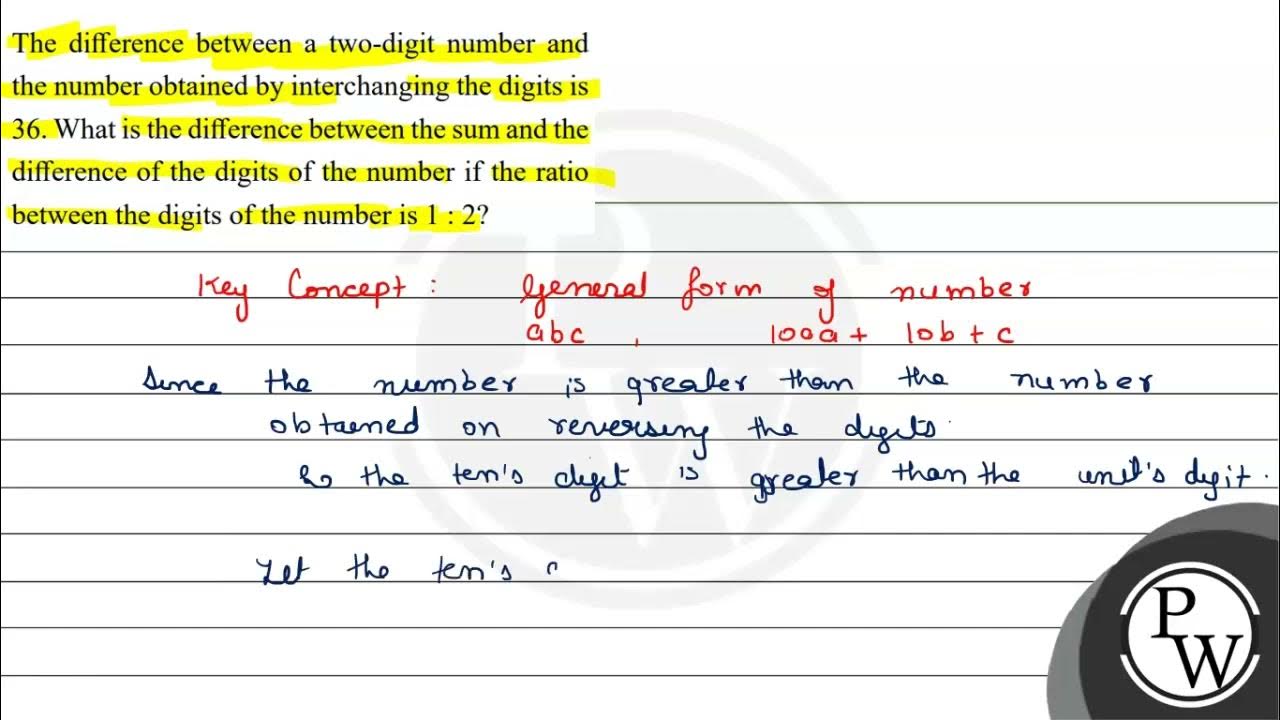 The difference between a two-digit number and
the number obtained by interchanging the digits is
36. What is the difference between the sum and the
difference of the digits of the number if the ratio
between the digits of the number is 1 : 2?
Key Concept : General form of number
abc , 100a + 10b + c
Since the number is greater than the number
obtained on reversing the digits.
So the ten's digit is greater than the unit's digit.
Let the ten's
P
W